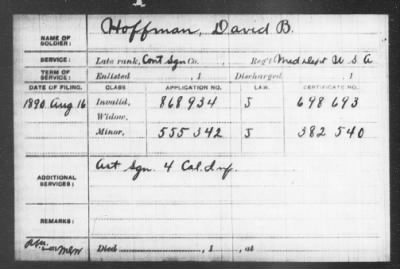 NAME OF SOLDIER: Hoffman, David B.
SERVICE: Late rank, Cont Sgn Co. Reg't Med Dept U S A
TERM OF SERVICE: Enlisted , 1 Discharged , 1
DATE OF FILING. CLASS. APPLICATION NO. LAW. CERTIFICATE NO.
1890 Aug 16 Invalid, 868934 J 698693
Widow,
Minor, 555342 J 382540
ADDITIONAL SERVICES: Ast Sgn. 4 Cal. Inf.
REMARKS:
Died , 1 , at